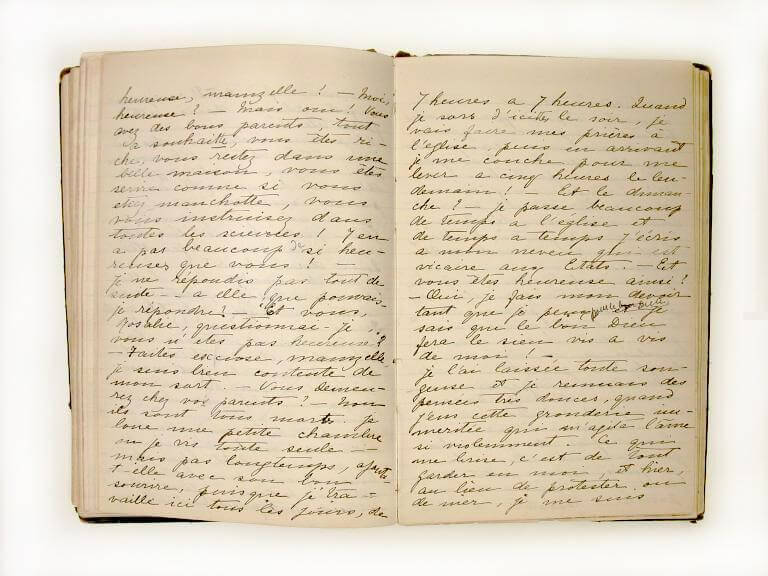 heureuse, mamzelle ! — Moi,
heureuse ? — Mais oui ! Vous
avez des bons parents, tout
à souhaitte, vous êtes ri-
che, vous restez dans une
belle maison, vous êtes
servie comme si vous
étiez manchotte, vous
vous instruisez dans
toutes les sciences ! Y en
a pas beaucoup de si heu-
reuses que vous ! —
je ne répondis pas tout de
suite — à elle que pouvais-
je répondre ! — Et vous,
Rosalie, questionnai-je,
vous n'êtes pas heureuse ?
— Faites excuse, mamzelle,
je suis bien contente de
mon sort. — Vous demeu-
rez chez vos parents ? — Non
ils sont tous morts. je
loue une petite chambre
où je vis toute seule —
mais pas longtemps, ajouta
t elle avec son bon
sourire, puisque je tra-
vaille ici tous les jours, de
7 heures a 7 heures. Quand
je sors d'ici le soir, je
vais faire mes prières à
l'église, puis en arrivant
je me couche pour me
lever a cinq heures le len-
demain ! — Et le diman-
che ? — je passe beaucoup
de temps a l'église et
de temps a temps j'écris
a mon neveu qui est
vicaire aux Etats. — Et
vous êtes heureuse ainsi ?
— Oui, je fais mon devoir
tant que je peux pour le bon Dieu et je
sais que le bon Dieu
fera le sien vis a vis
de moi ! —
je l'ai laissée toute son-
geuse et je remuais des
pensées très douces, quand
j'eus cette gronderie im-
méritée qui m'agita l'âme
si violemment. Ce qui
me brise, c'est de tout
garder en moi, et hier,
au lieu de protester ou
de nier, je me suis